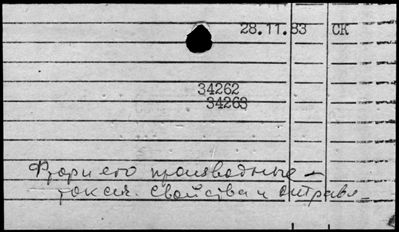 28.11.83 СК
34262
34263
Фтор и его производные –
токсич. свойства и